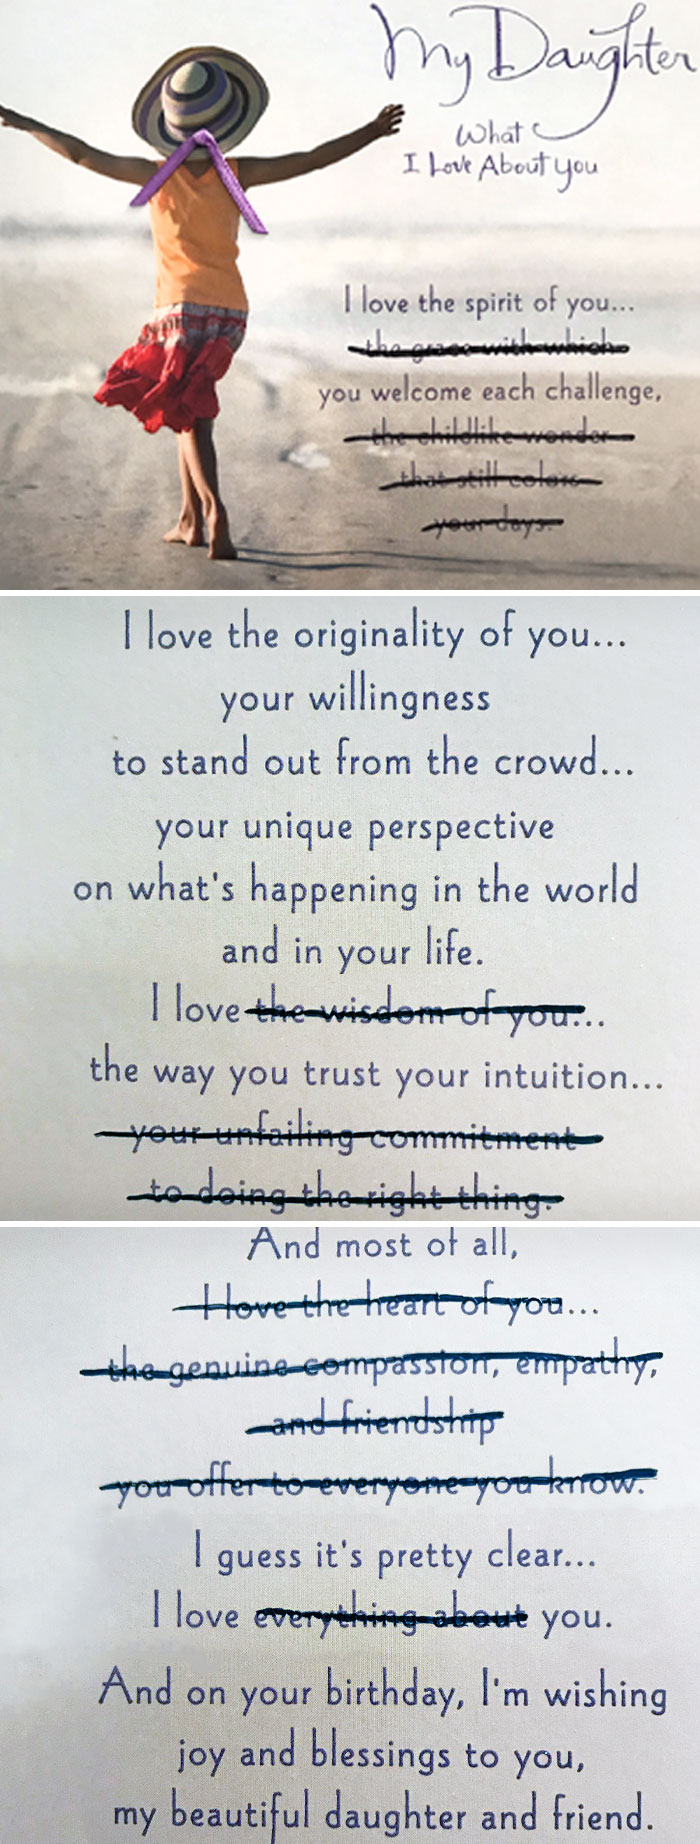 My Daughter
What
I Love About you
I love the spirit of you...
the grace with which
you welcome each challenge,
the childlike wonder
that still colors
your days.
I love the originality of you...
your willingness
to stand out from the crowd...
your unique perspective
on what's happening in the world
and in your life.
I love the wisdom of you...
the way you trust your intuition...
your unfailing commitment
to doing the right thing.
And most of all,
I love the heart of you...
the genuine compassion, empathy,
and friendship
you offer to everyone you know.
I guess it's pretty clear...
I love everything about you.
And on your birthday, I'm wishing
joy and blessings to you,
my beautiful daughter and friend.